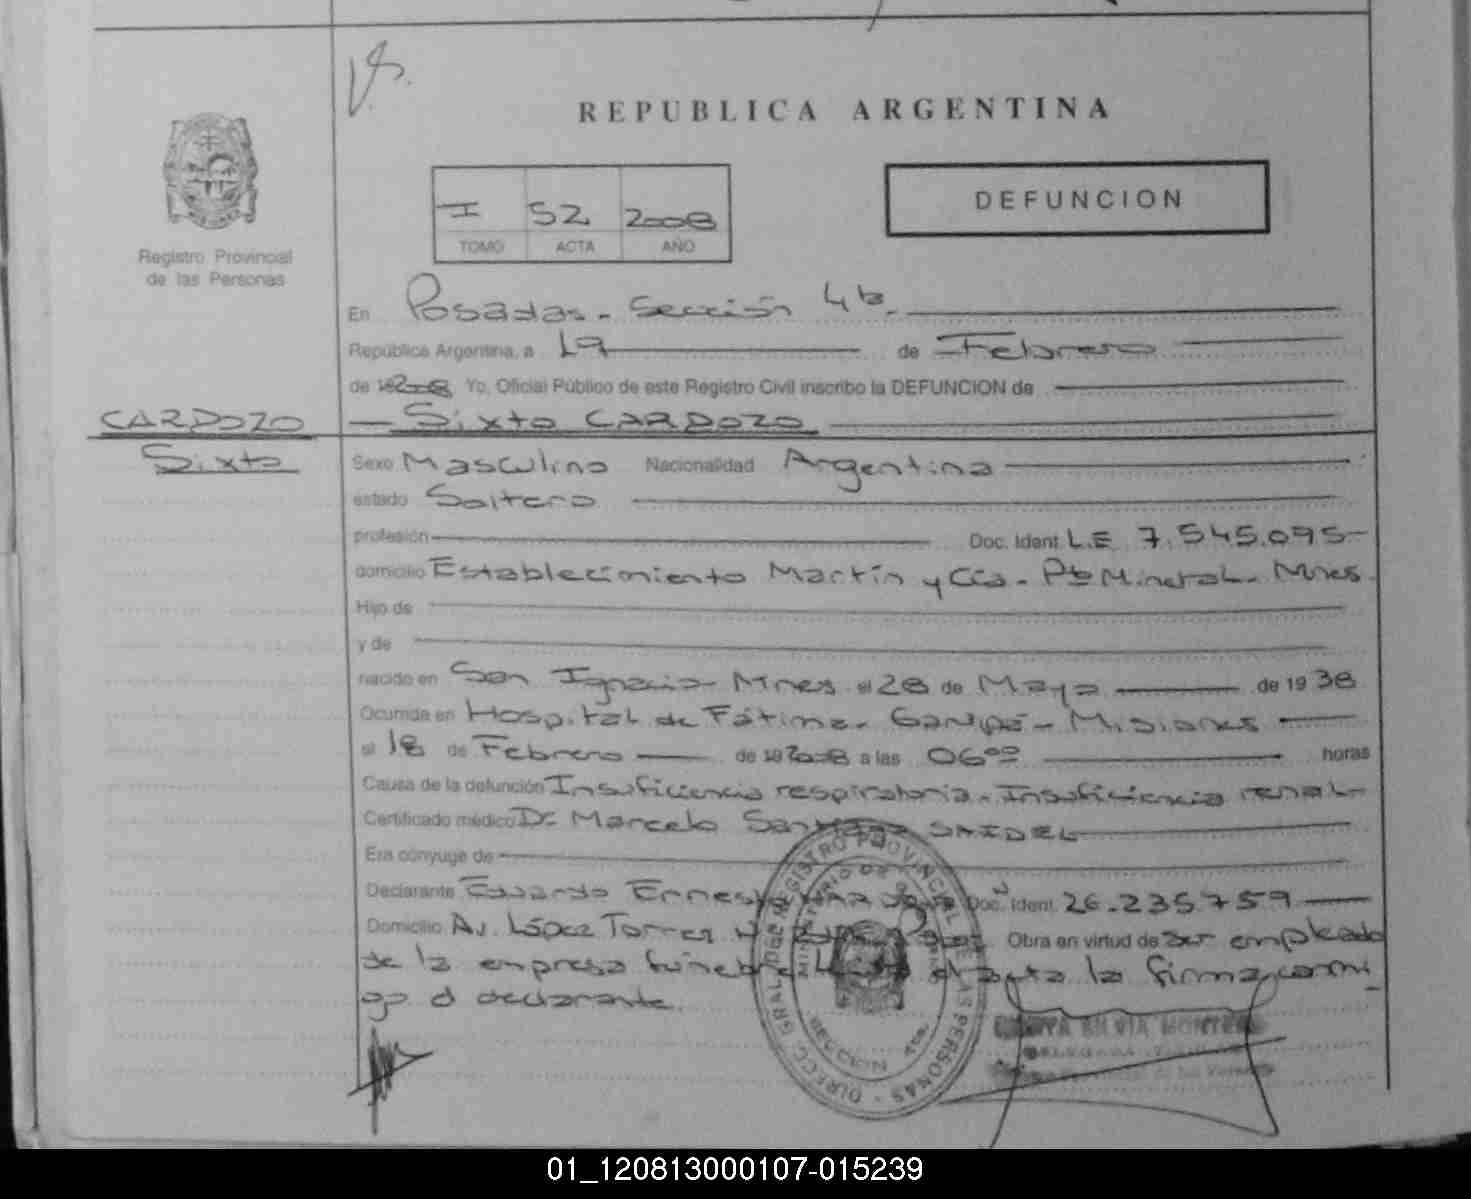 REPUBLICA ARGENTINA
DEFUNCION
I 52 2008
TOMO ACTA AÑO
Registro Provincial
de las Personas
En Posadas - Sección 4ta.
República Argentina, a 19 de Febrero
de 2008 Yo, Oficial Público de este Registro Civil inscribo la DEFUNCION de
CARDOZO
Sixto
Sixto CARDOZO
Sexo Masculino Nacionalidad Argentina
estado Soltero
profesión Doc. Ident. L.E 7.545.095-
domicilio Establecimiento Martín y Cía - Pto Mineral - Mnes.
Hijo de
y de
nacido en San Ignacio - Mnes el 28 de Mayo de 1938
Ocurrida en Hospital de Fátima - Garupá - Misiones
el 18 de Febrero de 2008 a las 06ºº horas
Causa de la defunción Insuficiencia respiratoria - Insuficiencia renal-
Certificado médico Dr Marcelo Santiago SAIDEL
Era cónyuge de
Declarante Eduardo Ernesto Doc. Ident. 26.235.759
Domicilio Av. López Torres Obra en virtud de ser empleado
de la empresa fúnebre acta la firma conmi-
go el declarante.
DIRECC. GRAL. DEL REGISTRO PROVINCIAL DE LAS PERSONAS
MINISTERIO DE
SILVIA
01_120813000107-015239